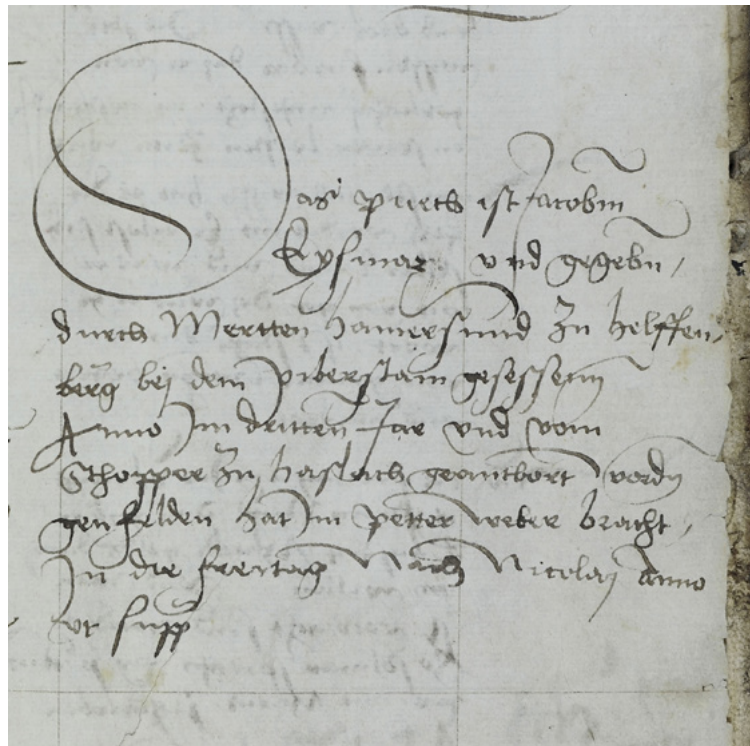 Das puech ist Jacobm
Eysmar vnd gegebn /
durch Mertten hamersmid zu helffen,
berg bej dem piberstain gesessenn
Anno Im dritten Jar vnd vom
Schopper zu haslach geantbort wordn
gen felden hat Im petter weber bracht /
In die freitag Nach Nicolaj Anno
vt supp